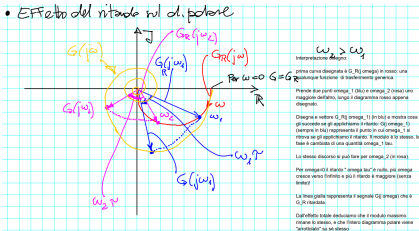 • Effetto del ritardo sul dipolare
J
G_R(jω_2)
G(jω)
G_R(jω_1)
G_R(jω)
ω_2 > ω_1
Per ω=0 G=G_R
R
G(jω_2)
ω
ω_2
ω_1
ω_1 τ
G(jω_1)
ω_2 τ
Interpretazione disegno
prima curva disegnata è G_R(j omega) in rosso: una
qualunque funzione di trasferimento generica
Prende due punti omega_1 (blu) e omega_2 (rosa) uno
maggiore dell'altro, lungo il diagramma rosso appena
disegnato.
Disegna e vettore G_R(j omega_1) (in blu) e mostra cosa
gli succede se gli applichiamo il ritardo: G(j omega_1)
(sempre in blu) rappresenta il punto in cui omega_1 si
ritrova se gli applichiamo il ritardo. Il modulo è lo stesso, la
fase è cambiata di una quantità omega_1 tau.
Lo stesso discorso si può fare per omega_2 (in rosa).
Per omega=0 il ritardo " omega tau" è nullo, più omega
cresce verso l'infinito e più il ritardo è maggiore (senza
limite)!
La linea gialla rappresenta il segnale G(j omega) che è
G_R ritardata.
Dall'effetto totale deduciamo che il modulo massimo
rimane lo stesso, e che l'intero diagramma polare viene
"arrotolato" su sé stesso